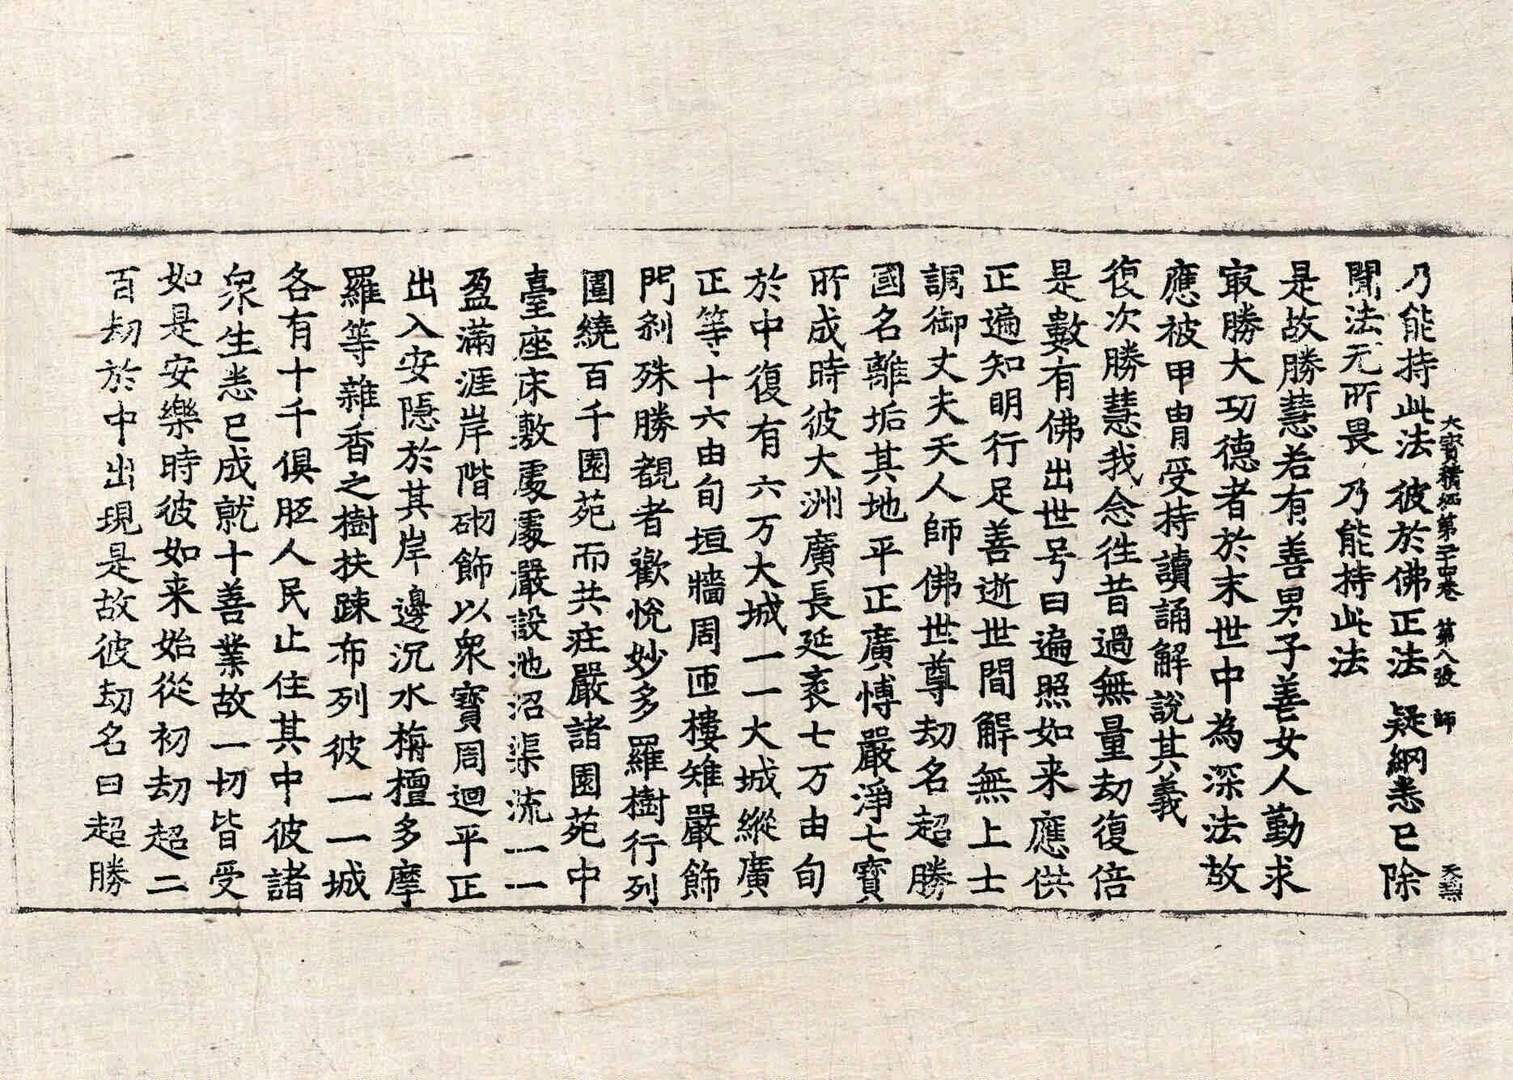 大寶積經第二十四卷 第八張 師 天熙
乃能持此法 彼於佛正法 疑網悉已除
聞法无所畏 乃能持此法
是故勝慧若有善男子善女人勤求
冣勝大功德者於末世中為深法故
應被甲冑受持讀誦解說其義
復次勝慧我念徃昔過無量劫復倍
是數有佛出世号曰遍照如来應供
正遍知明行足善逝世間解無上士
調御丈夫天人師佛世尊劫名超勝
國名離垢其地平正廣博嚴淨七寶
所成時彼大洲廣長延袤七万由旬
於中復有六万大城一一大城縱廣
正等十六由旬垣牆周匝樓雉嚴飾
門剎殊勝觀者歡悅妙多羅樹行列
圍繞百千園苑而共莊嚴諸園苑中
臺座床敷處處嚴設池沼渠流一一
盈滿涯岸階砌飾以衆寶周迴平正
出入安隱於其岸邊沉水栴檀多摩
羅等雜香之樹扶踈布列彼一一城
各有十千俱胝人民止住其中彼諸
衆生悉已成就十善業故一切皆受
如是安樂時彼如来始從初劫超二
百劫於中出現是故彼劫名曰超勝